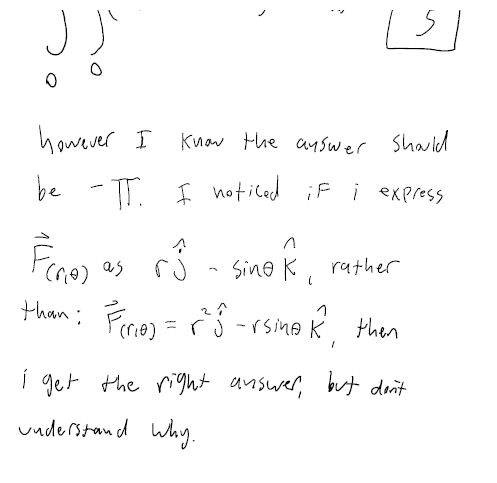 0 0 5
however I know the answer should
be -π. I noticed if i express
F⃗(r,θ) as rĵ - sinθ k̂, rather
than: F⃗(r,θ) = r²ĵ - rsinθ k̂, then
i get the right answer, but don't
understand why.